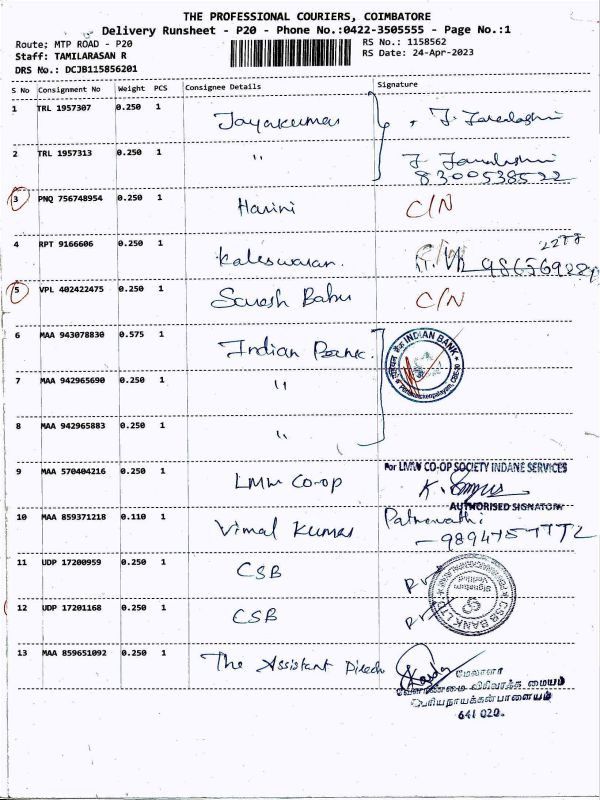 THE PROFESSIONAL COURIERS, COIMBATORE
Delivery Runsheet - P20 - Phone No.:0422-3505555 - Page No.:1
Route; MTP ROAD - P20
RS No.: 1158562
Staff: TAMILARASAN R
RS Date: 24-Apr-2023
DRS No.: DCJB115856201
S No Consignment No Weight PCS Consignee Details Signature
1 TRL 1957307 0.250 1 Jayakumar
2 TRL 1957313 0.250 1 "
8300538522
3 PNQ 756748954 0.250 1 Harini C/N
4 RPT 9166606 0.250 1 Kaleswaran.
5 VPL 402422475 0.250 1 Suresh Babu C/N
6 MAA 943078830 0.575 1 Indian Bank. INDIAN BANK
7 MAA 942965690 0.250 1 "
8 MAA 942965883 0.250 1 "
For LMW CO-OP SOCIETY INDANE SERVICES
9 MAA 570404216 0.250 1 LMW Co-op
AUTHORISED SIGNATORY
10 MAA 859371218 0.110 1 Vimal Kumar
11 UDP 17200959 0.250 1 CSB
12 UDP 17201168 0.250 1 CSB CSB BANK LTD
Signature Verified
13 MAA 859651092 0.250 1 The Assistant Direch
மேலாளர்
வேளாண்மை விரிவாக்க மையம்
பெரியநாயக்கன்பாளையம்
641 020.